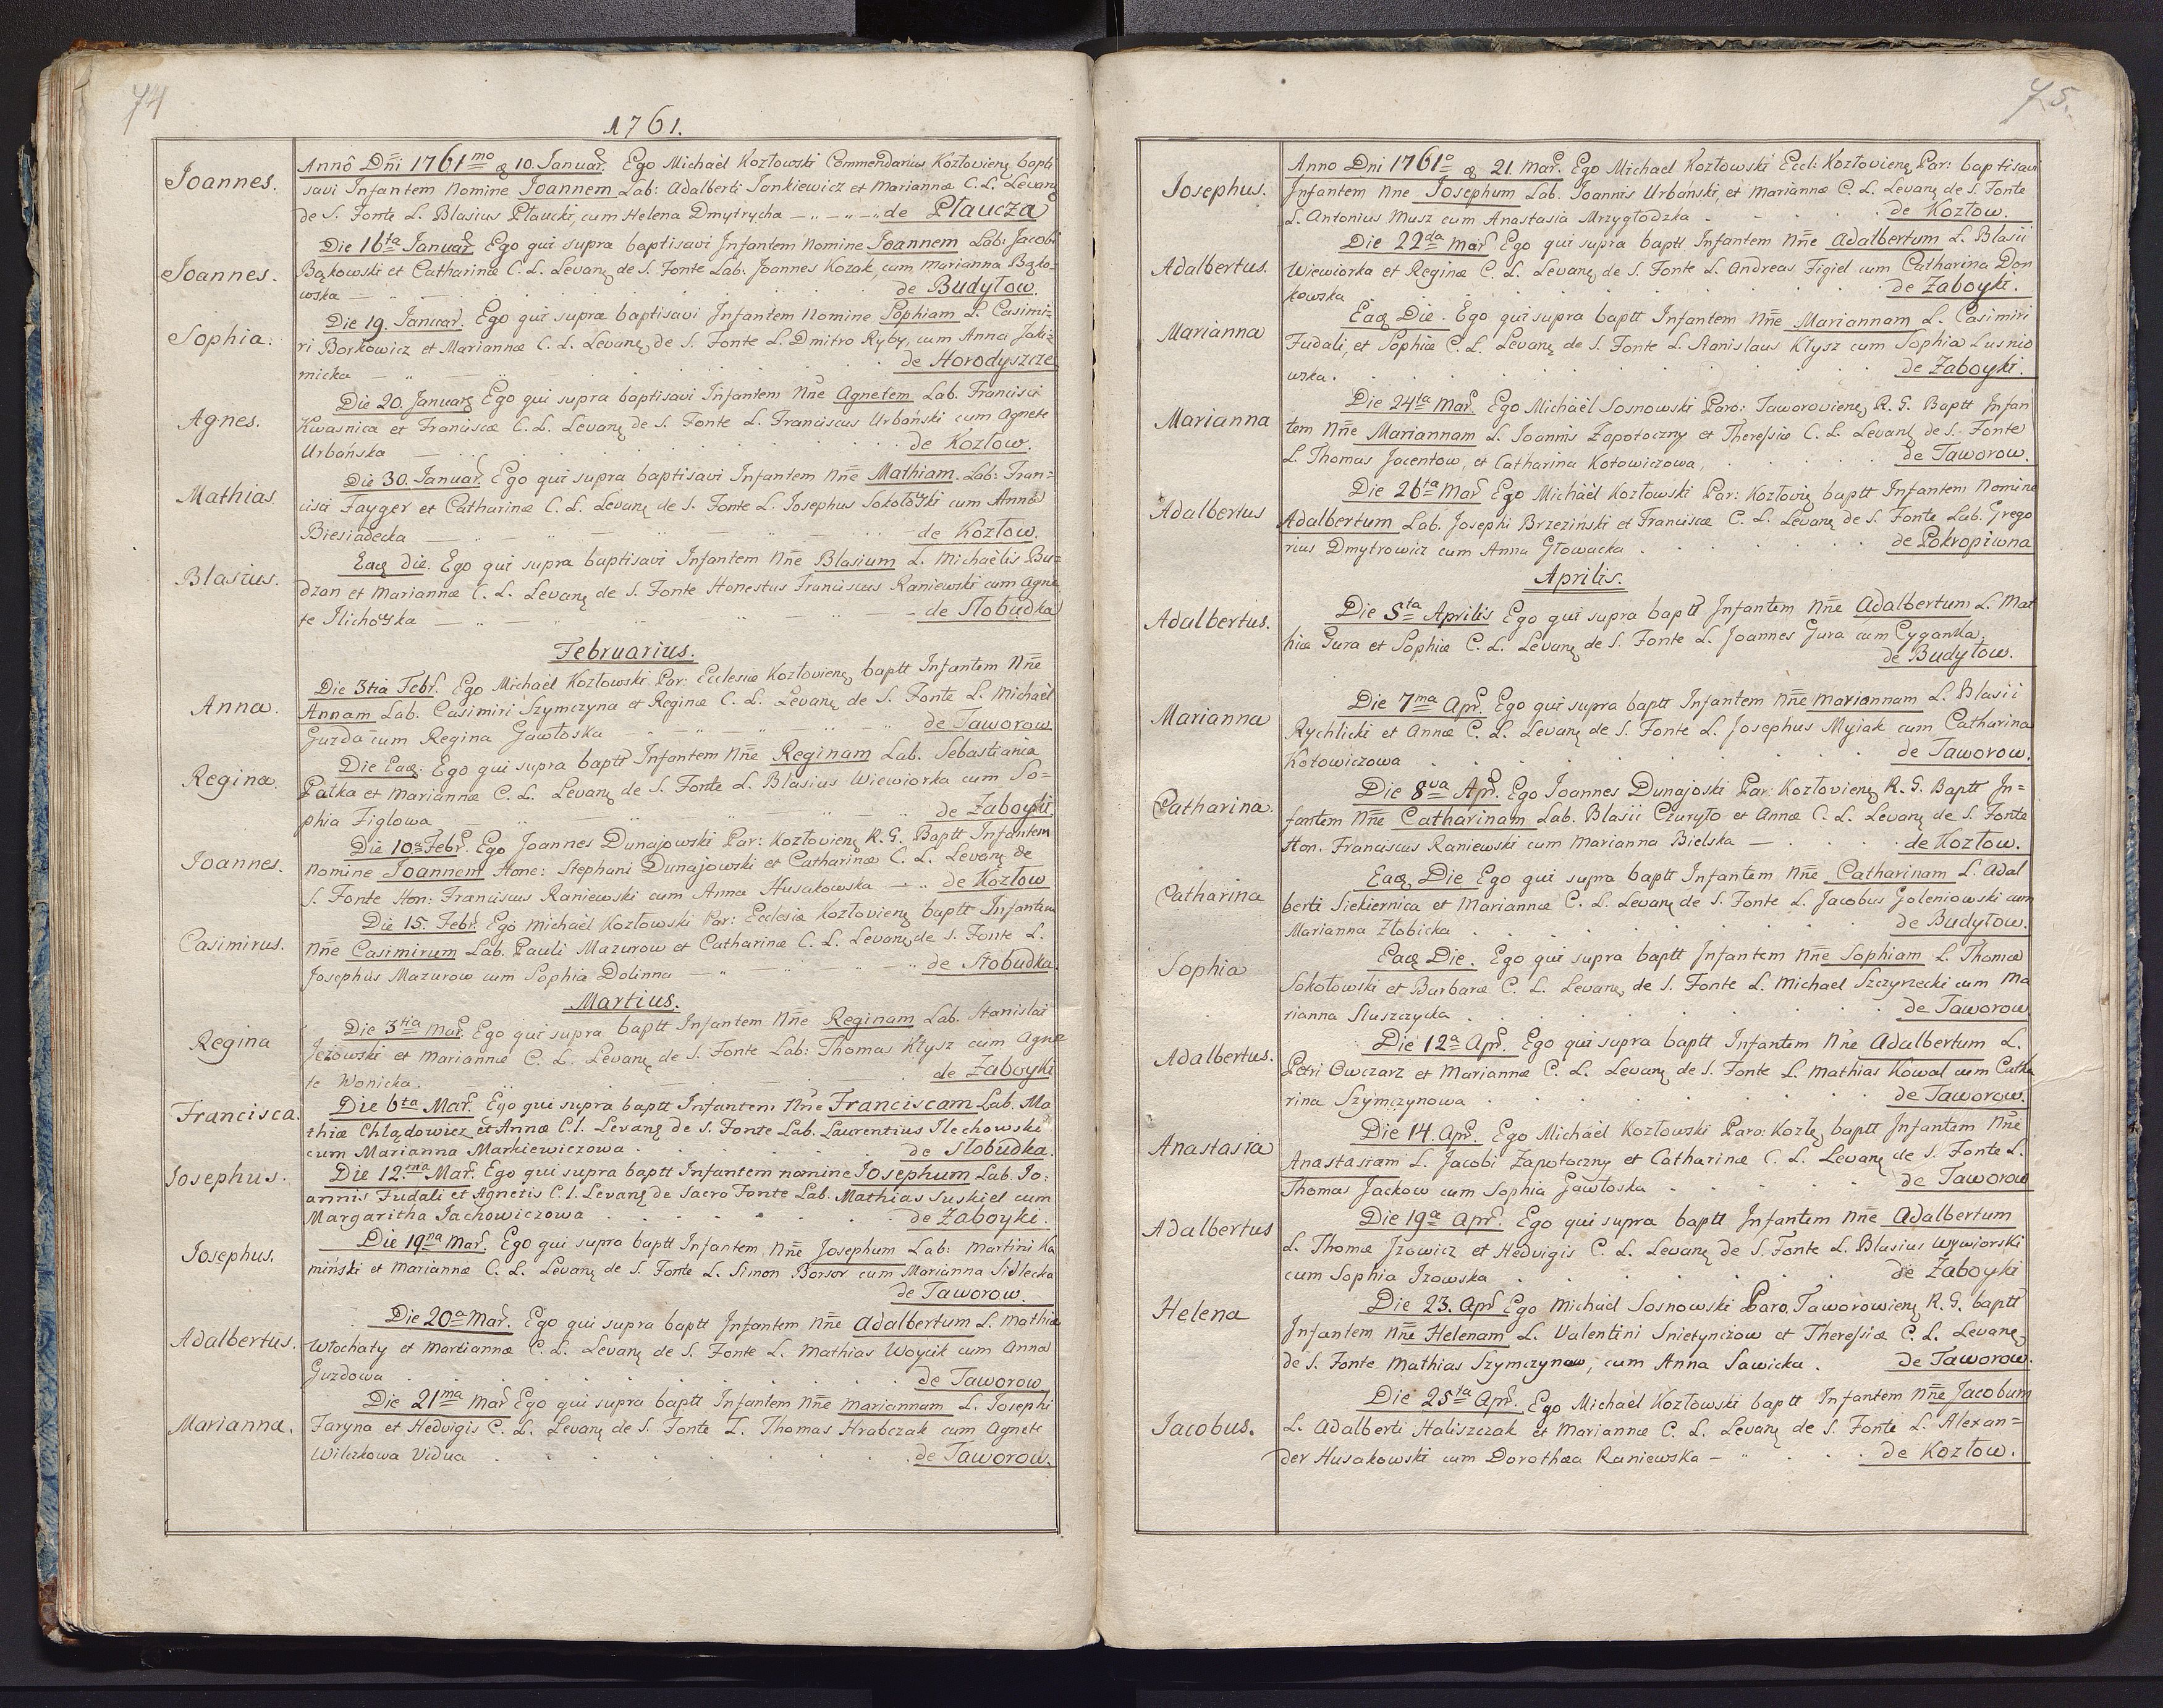 74
1761.
Joannes.
Annô Dñi 1761mo & 10. Januar. Ego Michaèl Kozłowski Commendarius Kozłovienę bapti
savi Infantem Nomine Joannem Lab: Adalberti Jankiewicz et Mariannæ C. L. Levanę
de S. Fonte L. Blasius Płaucki, cum Helena Dmytrycha — „ — „ — „ de Płaucza
Joannes.
Die 16ta Januar Ego qui supra baptisavi Infantem Nomine Joannem Lab: Jacobi
Bąkowski et Catharinæ C. L. Levanę de S. Fonte Lab. Joannes Kozak, cum Marianna Bąko-
wska — „ — . . . de Budyłow.
Sophia.
Die 19. Januar. Ego qui supra baptisavi Infantem Nomine Sophiam L. Casimi-
ri Borkowicz et Mariannæ C. L. Levanę de S. Fonte L. Dmitro Ryby, cum Anna Jaki-
micka — „ — . . . de Horodyszcze
Agnes.
Die 20. Januarę Ego qui supra baptisavi Infantem Nñe Agnetem Lab. Francisci
Kwasnica et Franciscæ C. L. Levanę de S. Fonte L. Franciscus Urbański cum Agnete
Urbańska — . . . de Kozłow.
Mathias.
Die 30. Januar. Ego qui supra baptisavi Infantem Nñe Mathiam. Lab: Fran-
cisci Fayger et Catharinæ C. L. Levanę de S. Fonte L. Josephus Sokołoski cum Anna
Biesiadecka — „ — „ — de Kozłow.
Blasius.
Eaę die. Ego qui supra baptisavi Infantem Nñe Blasium L. Michaèlis Bu-
dzan et Mariannæ C. L. Levanę de S. Fonte Honestus Franciscus Raniewski cum Agne
te Ilichoska — „ — „ — de Słobudka
Februarius.
Anna.
Die 3tia Febr. Ego Michaèl Kozłowski Par: Ecclesiæ Kozłovienę baptt Infantem Nñe
Annam Lab. Casimiri Szymczyna et Reginæ C. L. Levanę de S. Fonte L. Michaèl
Guzda cum Regina Gawłoska — „ — de Taworow
Regina.
Die Eaę. Ego qui supra baptt Infantem Nñe Reginam Lab. Sebastiania
Pałka et Mariannæ C. L. Levanę de S. Fonte L. Blasius Wiewiorka cum So-
phia Figlowa — „ — de Zaboyki.
Joannes.
Die 10a Febr. Ego Joannes Dunajowski Par: Kozłovienę R. G. Baptt Infantem
Nomine Joannem Hone: Stephani Dunajowski et Catharinæ C. L. Levanę de
S. Fonte Hon: Franciscus Raniewski cum Anna Husakowska — „ de Kozłow
Casimirus.
Die 15. Febr. Ego Michaèl Kozłowski Par: Ecclesiæ Kozłovienę baptt Infantem
Nñe Casimirum Lab. Pauli Mazurow et Catharinæ C. L. Levanę de S. Fonte L.
Josephus Mazurow cum Sophia Dolinna — „ — „ de Słobudka.
Martius.
Regina
Die 3tia Mar. Ego qui supra baptt Infantem Nñe Reginam Lab. Stanislai
Jeżowski et Mariannæ C. L. Levanę de S. Fonte Lab: Thomas Kłysz cum Agne
te Wonicka. — de Zaboyki
Francisca.
Die 6ta Mar. Ego qui supra baptt Infantem Nñe Franciscam Lab. Ma
thiæ Chlądowicz et Annæ C. l. Levanę de S. Fonte Lab. Laurentius Ilechowski
cum Marianna Markiewiczowa . . . de Słobudka.
Josephus.
Die 12.ma Mar. Ego qui supra baptt Infantem nomine Josephum Lab. Jo:
annis Fudali et Agnetis C. l. Levanę de Sacro Fonte Lab. Mathias Suskiel cum
Margaritha Jachowiczowa . . . de Zaboyki.
Josephus.
Die 19na Mar. Ego qui supra baptt Infantem Nñe Josephum Lab: Martini Ka
miński et Mariannæ C. L. Levanę de S. Fonte L. Simon Borsor cum Marianna Sidlecka
de Taworow.
Adalbertus.
Die 20a Mar. Ego qui supra baptt Infantem Nñe Adalbertum L. Mathiæ
Włochaty et Mariannæ C. L. Levanę de S. Fonte L. Mathias Woycik cum Anna
Guzdowa . . . de Taworow
Marianna.
Die 21ma Mar Ego qui supra baptt Infantem Nñe Mariannam L. Josephi
Faryna et Hedvigis C. L. Levanę de S. Fonte L. Thomas Hrabczak cum Agnete
Wilczkowa Vidua . . . de Taworow.
75.
Josephus.
Anno Dni 1761o & 21. Mar. Ego Michael Kozłowski Eccl: Kozłovienę Par: baptisavi
Infantem Nne Josephum Lab. Joannis Urbański, et Mariannæ C. L. Levanę de S. Fonte
L. Antonius Musz cum Anastasia Mrzygłodzka . . . de Kozłow.
Adalbertus.
Die 22da Mar Ego qui supra baptt Infantem Nñe Adalbertum L. Blasii
Wiewiorka et Reginæ C. L. Levanę de S. Fonte L. Andreas Figiel cum Catharina Don
kowska . . . de Zaboyki.
Marianna
Eaę Die. Ego qui supra baptt Infantem Nñe Mariannam L. Casimiri
Fudali, et Sophiæ C. L. Levanę de S. Fonte L. Stanislaus Kłysz cum Sophia Lusnio
wska. . . . de Zaboyki.
Marianna
Die 24ta Mar. Ego Michàèl Sosnowski Paro: Taworovienę R. G. Baptt Infan
tem Nñe Mariannam L. Joannis Zapotoczny et Theresiæ C. L. Levanę de S. Fonte
L. Thomas Jacentow, et Catharina Kotowiczowa, . . . de Taworow.
Adalbertus
Die 26ta Mar Ego Michàèl Kozłowski Par: Kozłovię baptt Infantem Nomine
Adalbertum Lab. Josephi Brzeziński et Franciscæ C. L. Levanę de S. Fonte Lab. Grego
rius Dmytrowicz cum Anna Głowacka . . . de Pokropiwna
Aprilis.
Adalbertus.
Die 5ta Aprilis Ego qui supra baptt Infantem Nñe Adalbertum L. Mat
hiæ Gura et Sophiæ C. L. Levanę de S. Fonte L. Joannes Gura cum Cyganka.
de Budyłow.
Marianna
Die 7ma Apr. Ego qui supra baptt Infantem Nñe Mariannam L. Blasii
Rychlicki et Annæ C. L. Levanę de S. Fonte L. Josephus Mysak cum Catharina
Kotowiczowa . . . de Taworow.
Catharina.
Die 8va Apr. Ego Joannes Dunajoski Par: Kozłovienę R. G. Baptt In-
fantem Nñe Catharinam Lab. Blasii Czuryło et Annæ C. L. Levanę de S. Fonte
Hon. Franciscus Raniewski cum Marianna Bielska — . . . de Kozłow.
Catharina
Eaę Die Ego qui supra baptt Infantem Nñe Catharinam L. Adal
berti Siekiernica et Mariannæ C. L. Levanę de S. Fonte L. Jacobus Goleniowski cum
Marianna Złobicka . . . de Budyłow.
Sophia
Eaę Die. Ego qui supra baptt Infantem Nñe Sophiam L. Thomæ
Sokołowski et Barbaræ C. L. Levanę de S. Fonte L. Michael Szczyrzecki cum Ma
rianna Sluszczycka . . . de Taworow
Adalbertus.
Die 12a Apr. Ego qui supra baptt Infantem Nñe Adalbertum L.
Petri Owczarz et Mariannæ C. L. Levanę de S. Fonte L. Mathias Kowal cum Catha
rina Szymczynowa . . . de Taworow.
Anastasia
Die 14. Apr. Ego Michàèl Kozłowski Paro: Kozłę baptt Infantem Nñe
Anastasiam L. Jacobi Zapotoczny et Catharinæ C. L. Levanę de S. Fonte L.
Thomas Jackow cum Sophia Gawłoska . . . de Taworow
Adalbertus
Die 19a Apr. Ego qui supra baptt Infantem Nñe Adalbertum
L. Thomæ Jzowicz et Hedvigis C. L. Levanę de S. Fonte L. Blasius Wywiorski
cum Sophia Jzowska . . . de Zaboyki
Helena
Die 23. Apr Ego Michàèl Sosnowski Paro. Taworowienę R. G. baptt
Infantem Nñe Helenam L. Valentini Snietynczow et Theresiæ C. L. Levanę
de S. Fonte Mathias Szymczynow, cum Anna Sawicka . de Taworow.
Jacobus.
Die 25ta Apr. Ego Michaèl Kozłowski baptt Infantem Nñe Jacobum
L. Adalberti Haliszczak et Mariannæ C. L. Levanę de S. Fonte L. Alexan-
der Husakowski cum Dorothæa Raniewska — „ . . . de Kozłow.